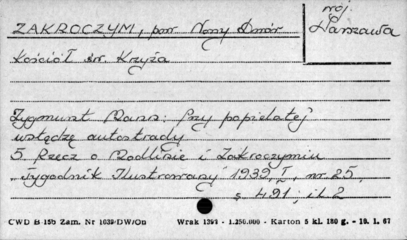 ZAKROCZYM, pow Nowy Dwór
woj.
Warszawa
Kościół św. Krzyża
Zygmunt Mann: Przy popielatej
wstędze autostrady
5. Rzecz o Modlinie i Zakroczymiu
„Tygodnik Ilustrowany" 1939, I, nr. 25,
s. 491; il. 2
CWD B 156 Zam. Nr 1039/DW/Ob Wrak 1391 - 1.250.000 - Karton 5 kl. 180 g. - 10. 1. 67